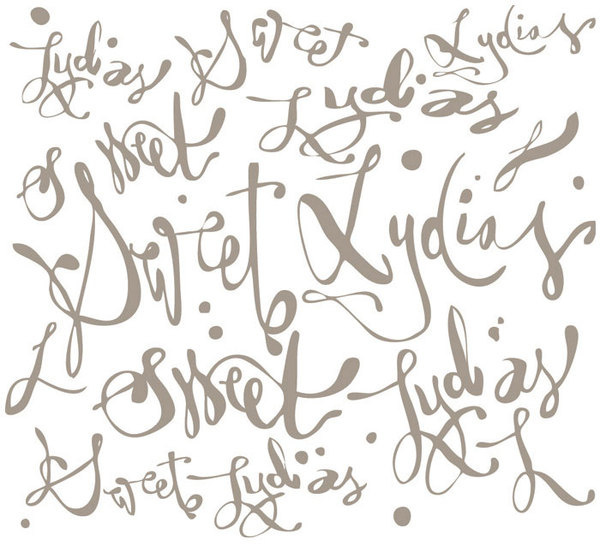 Lydias Sweet Lydias
Sweet Lydias L
Sweet Lydias
L Sweet Lydias
L
Sweet Lydias